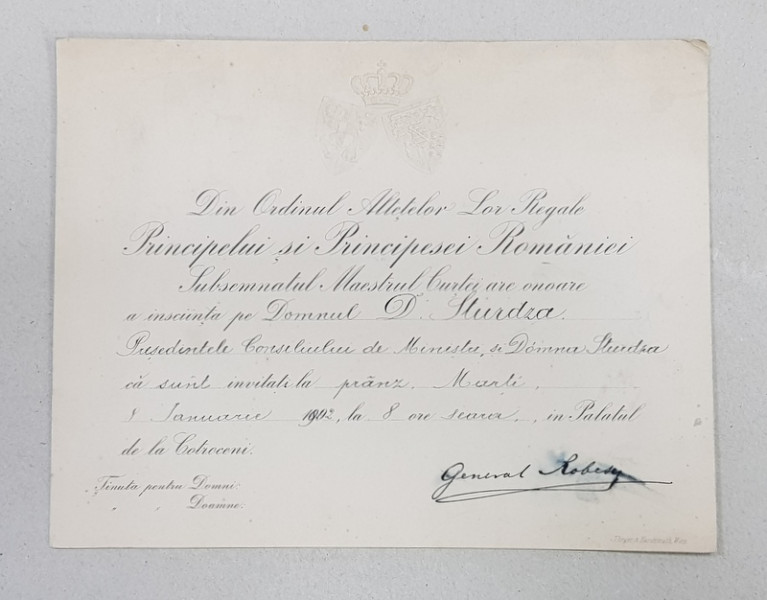 Din Ordinul Altețelor Lor Regale
Principelui și Principesei României
Subsemnatul Maestrul Curței are onoare
a insciința pe Domnul D. Sturdza.
Președintele Consiliului de Miniștri, și Dómna Sturdza
că sunt invitați la prânz, Marți,
8 Ianuarie 1902, la 8 ore seara, in Palatul
de la Cotroceni.
General Robescu
Ținuta pentru Domni:
Doamne: